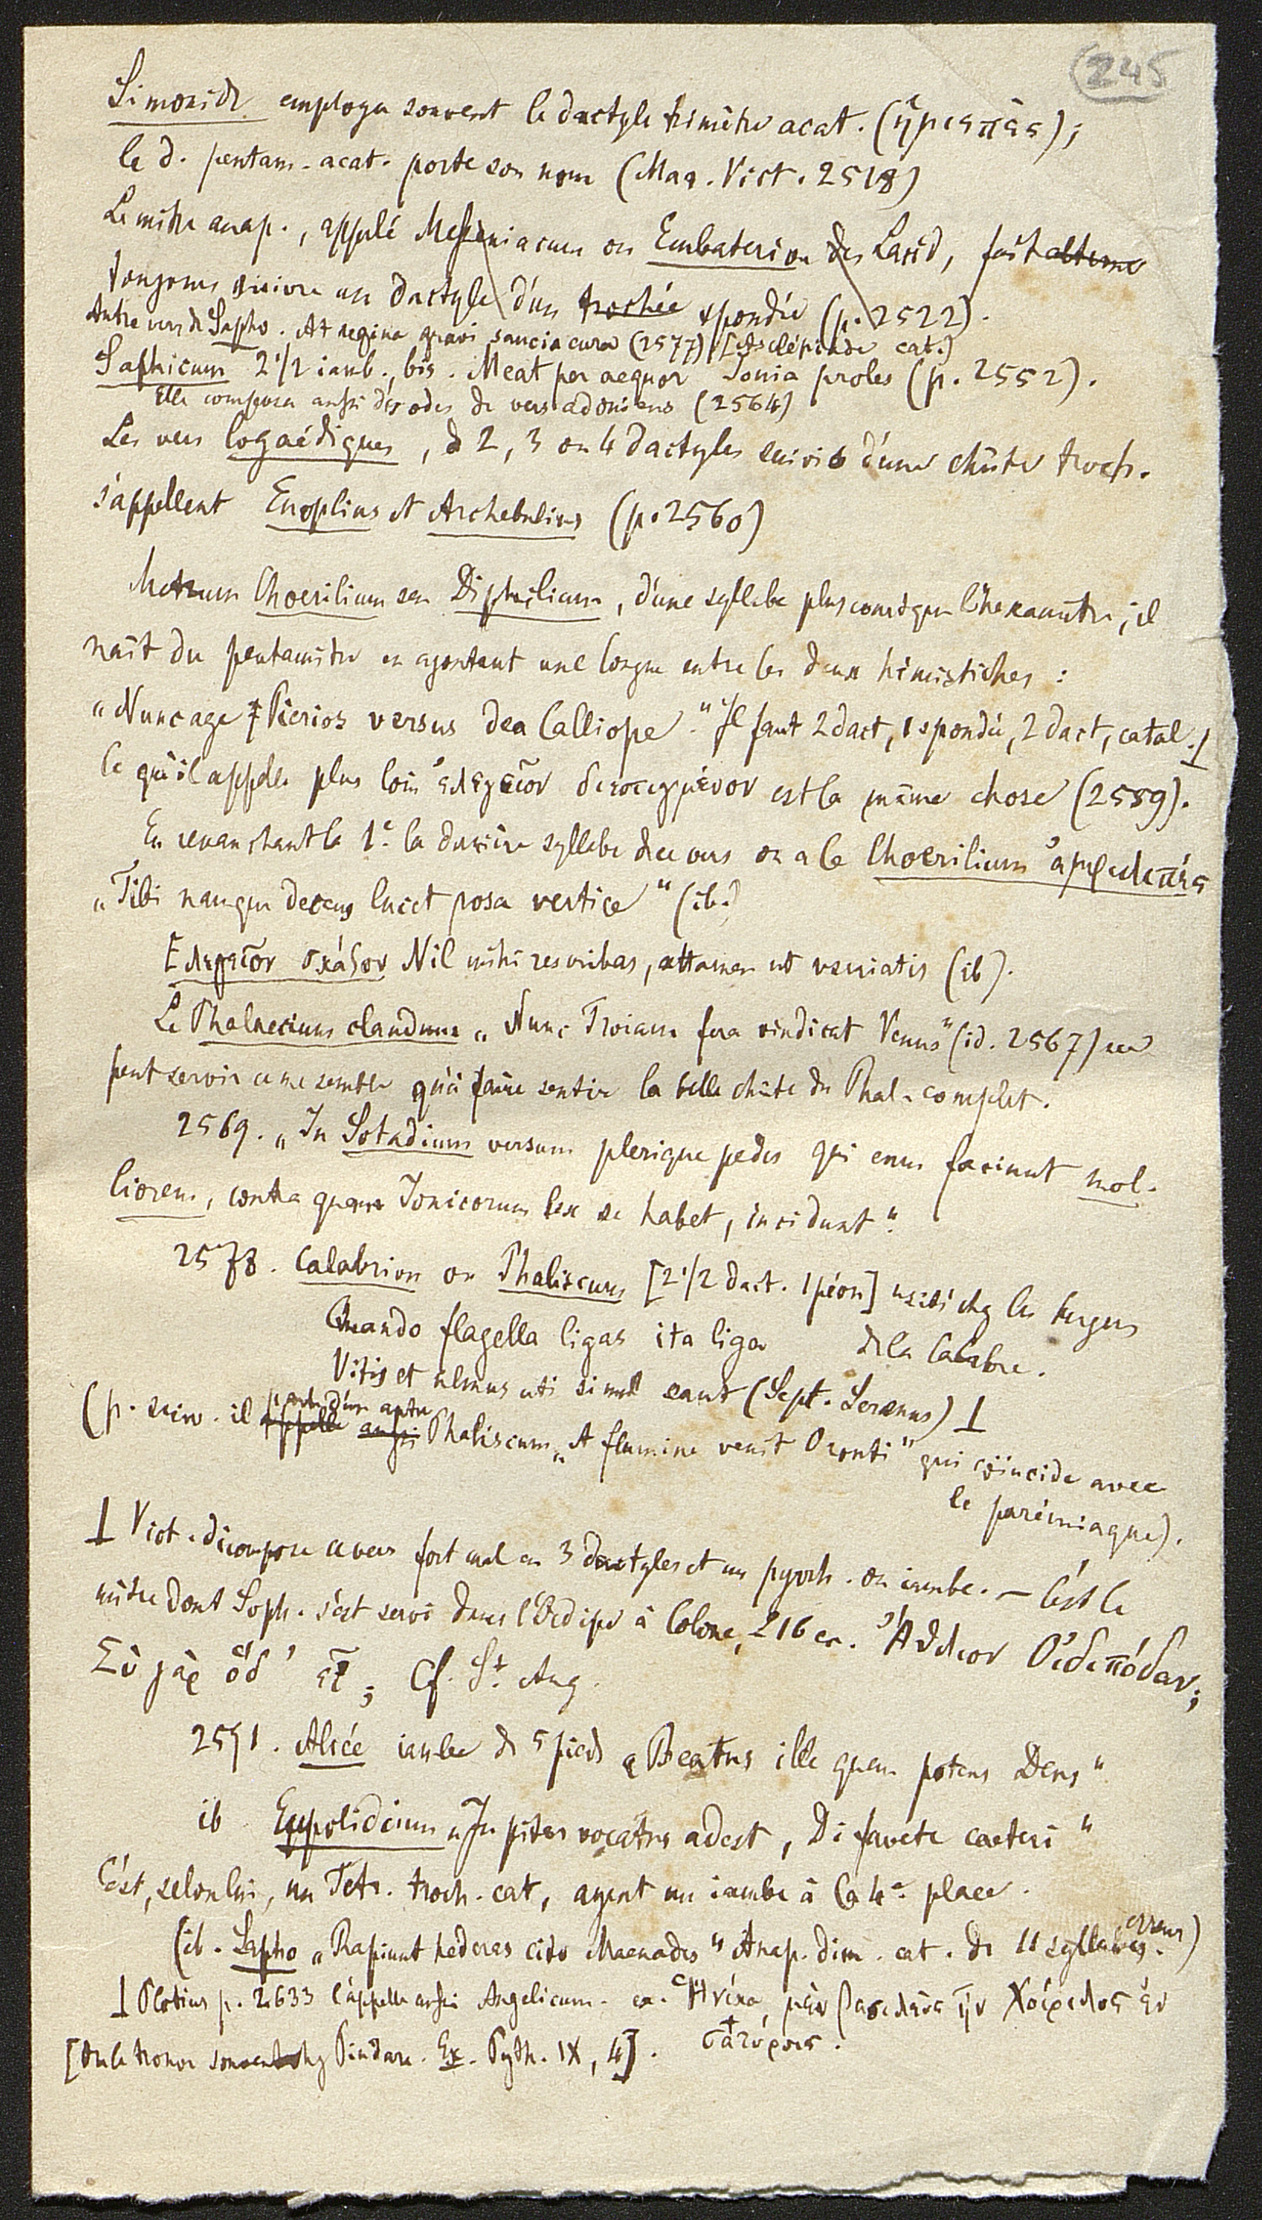 (245
Simonide employa souvent le dactyle trimètre acat. (ἡμιεπὲς);
le d. pentam. acat. porte son nom (Mar. Vict. 2518)
Le mètre anap., appelé Messeniacum ou Embaterion des Lacéd, fait alterne
toujours suivre un dactyle d'un trochée spondée (p. 2522).
Autre vers de Sapho. At regina gravi saucia cura (2577) [Asclépiade cat.]
Saphicum 2 1/2 iamb., bis. Meat per aequor Ionia proles (p. 2552).
Elle composa aussi des odes de vers adoniens (2564)
Les vers logaédiques, de 2, 3 ou 4 dactyles suivis d'une chûte troch.
s'appellent Enoplius et Archebulius (p. 2560)
Metrum Choerilium seu Diphilium, d'une syllabe plus court que l'hexamètre; il
naît du pentamètre en ajoutant une longue entre les deux hémistiches :
„Nunc age Pierios versus dea Calliope." Il faut 2 dact, 1 spondée, 2 dact, catal. ⊥
Ce qu'il appelle plus loin ἐλεγεῖον est la même chose (2559).
En retranchant la 1e la dernière syllabe de ce vers on a le Choerilium
„Tibi namque decens lucet rosa vertice" (ib.)
Ελεγεῖον σκάζον Nil mihi rescribas, attamen ut veniatis (ib).
Le Phalaecium claudum „Nunc Troiam fera vindicat Venus" (id. 2567) ne
peut servir ce me semble qu'à faire sentir la belle chûte du Phal. complet.
2569. „In Sotadium versum plerique pedes qui eum faciunt mol-
liorem, contra quam Ionicorum lex se habet, incidunt".
2578. Calabrion ou Phaliscum [2 1/2 dact. 1 péon] usité chez les bergers
Quando flagella ligas ita liga de la Calabre.
Vitis et ulmus uti simul eant (Sept. Serenus) ⊥
(p. suiv. il appelle aussi parle d'un autre Phaliscum „A flumine venit Oronti" qui coïncide avec
le parémiaque).
⊥ Vict. décompose ce vers fort mal en 3 dactyles et un pyrrh. ou iambe. — C'est le
mètre dont Soph. s'est servi dans l'Oedipe à Colone, 216 ex. Ἄθλιον Οἰδιπόδαν;
Σὺ γὰρ ὅδ' εἶ; Cf. St. Aug.
2591. Alcée iambe de 5 pieds „Beatus ille quem potens Deus"
ib Eupolideum „Jupiter vocatus adest, Di favete caeteri"
C'est, selon lui, un Tetr. troch. cat, ayant un iambe à la 4e place.
(ib. Sapho „Rapiunt hederas cito Maenades" Anap. dim. cat. de 11 syllabes. erreur)
⊥ Plotius p. 2633 l'appelle aussi Angelicum. ex. Ἡνίκα μὲν βασιλεὺς ἦν Χοίριλος ἐν
σατύροις.
[On le trouve souvent chez Pindare. Ex. Pyth. IX, 4].